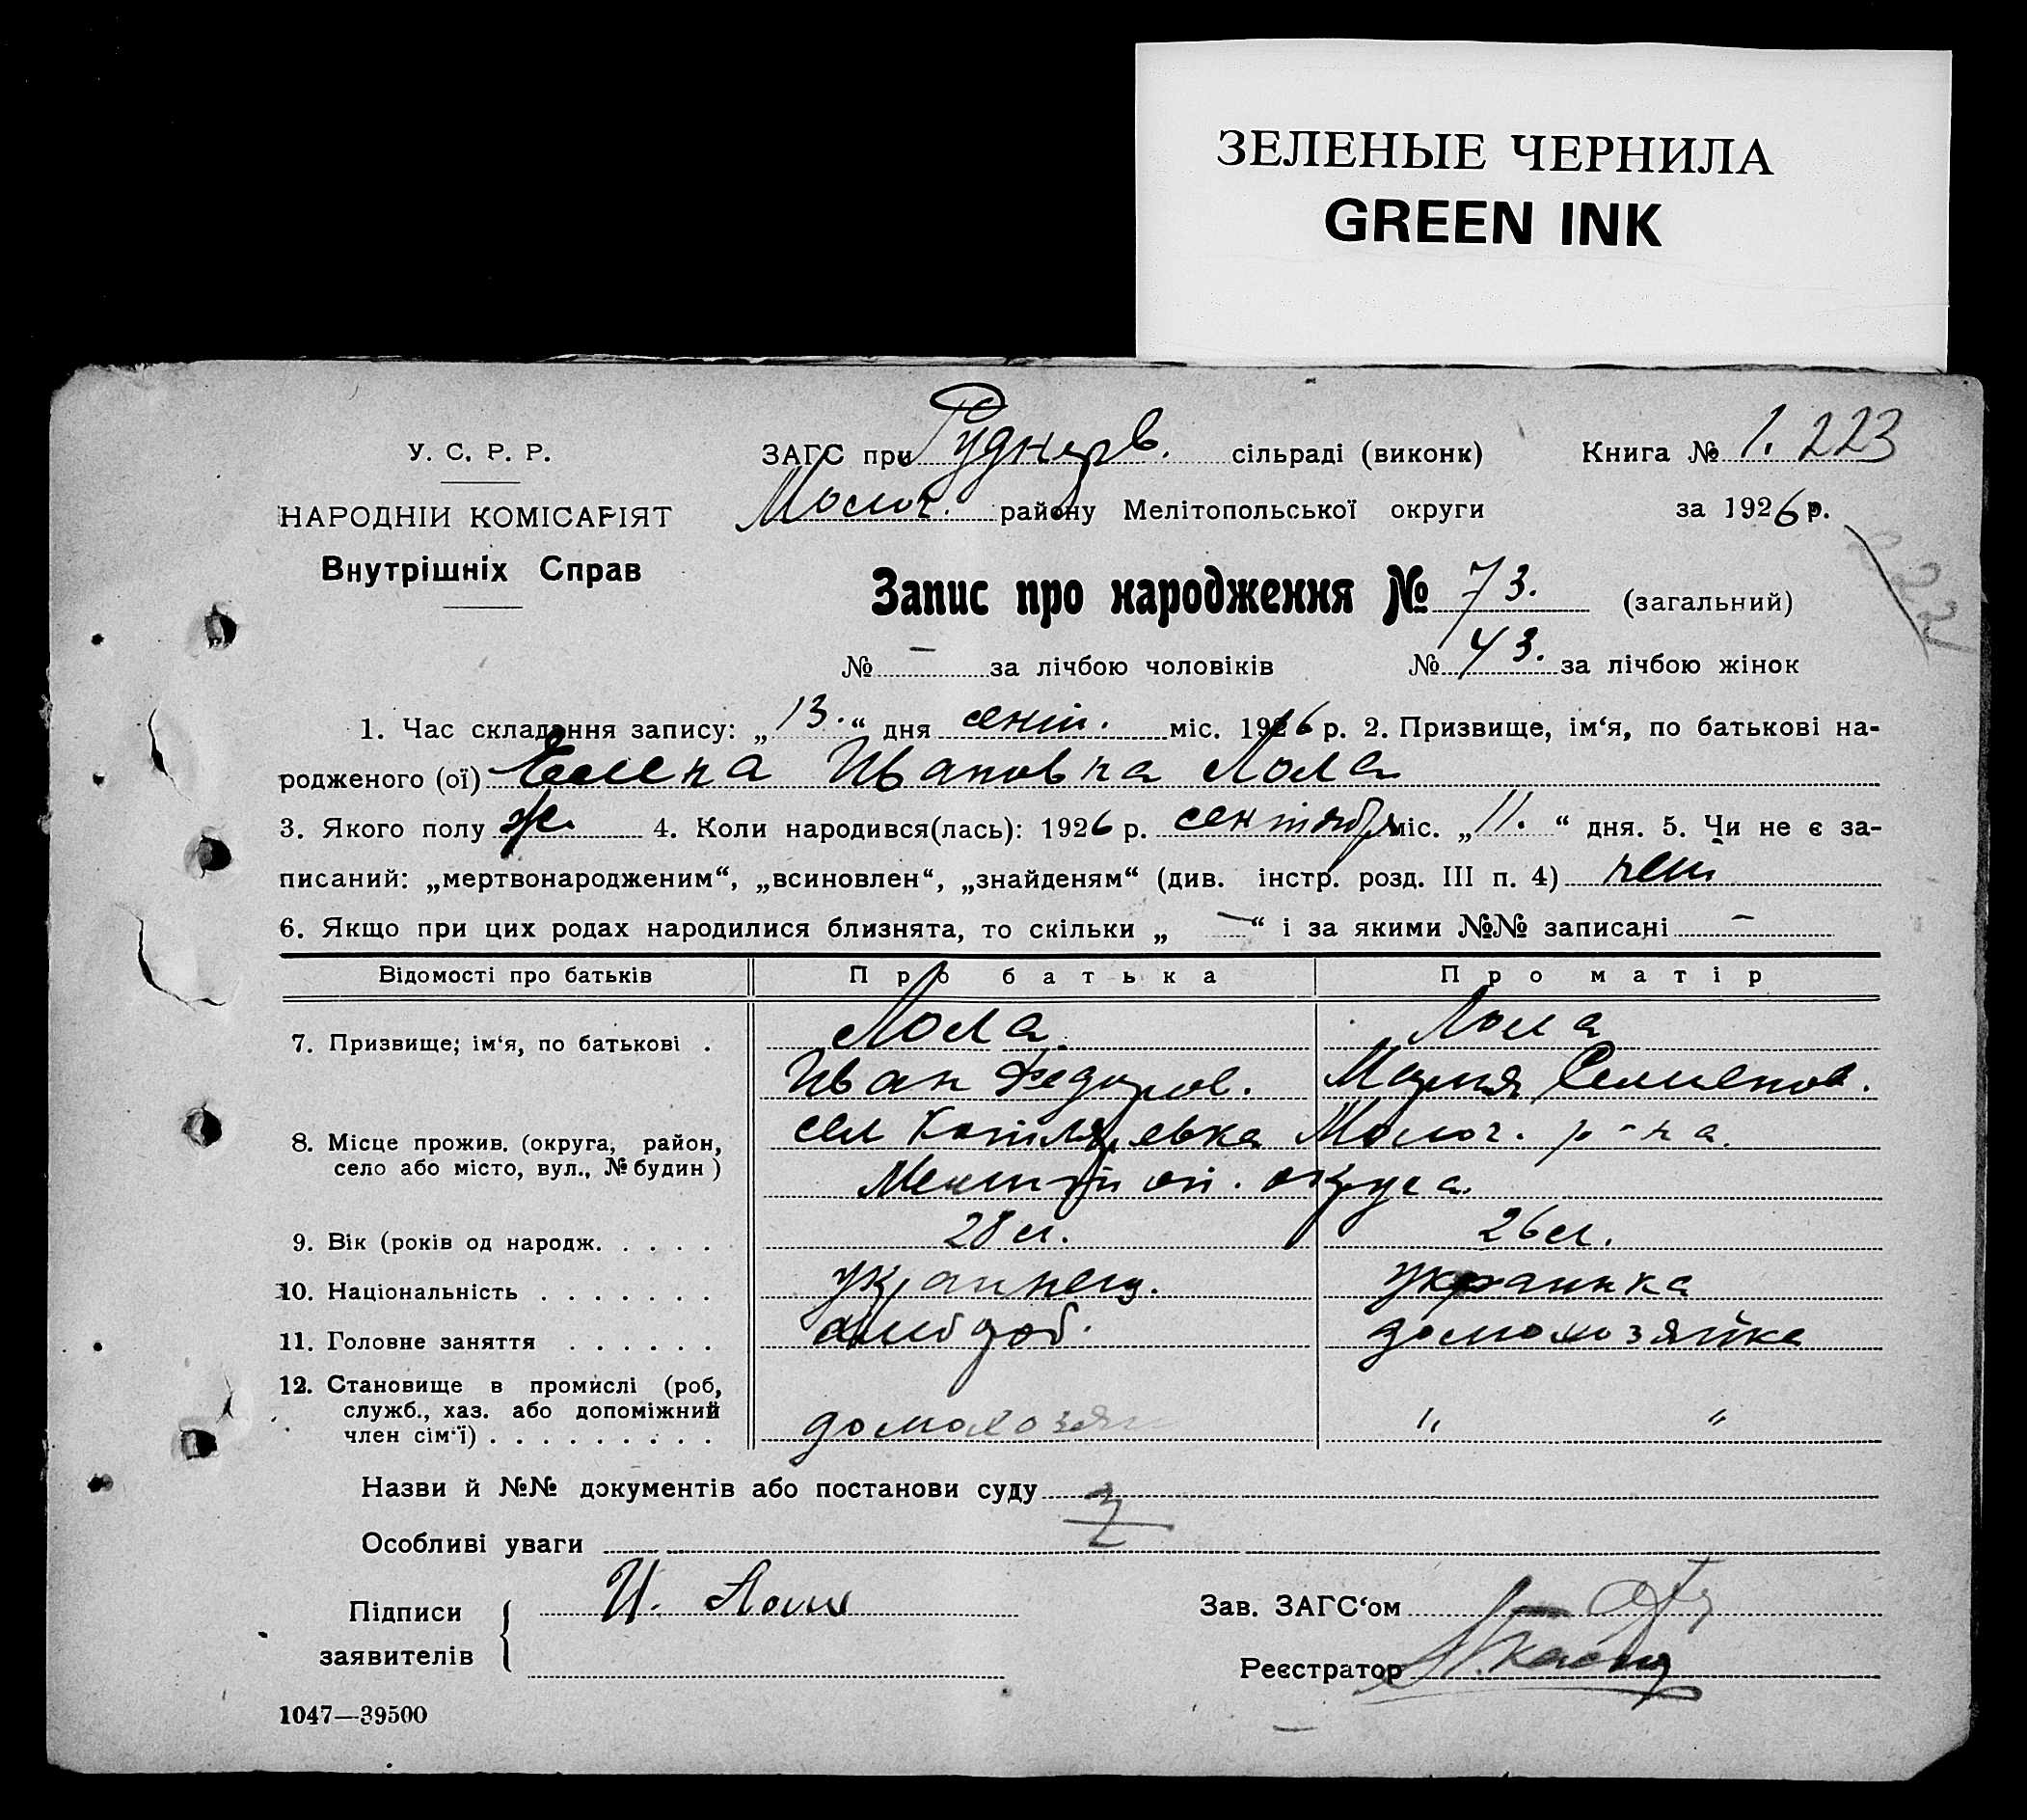 ЗЕЛЕНЫЕ ЧЕРНИЛА
GREEN INK
У. С. Р. Р.
ЗАГС при Руднерв. сільраді (виконк) Книга № 1. 223
НАРОДНІЙ КОМІСАРІЯТ
Молоч. району Мелітопольської округи за 1926 р.
Внутрішніх Справ
Запис про народження № 73. (загальний)
№ — за лічбою чоловіків № 43. за лічбою жінок
1. Час складання запису: „13.“ дня сент. міс. 1926 р. 2. Призвище, ім‘я, по батькові на-
родженого (ої) Елена Ивановна Лола
3. Якого полу ж. 4. Коли народився(лась): 1926 р. сентября міс. „11.“ дня. 5. Чи не є за-
писаний: „мертвонародженим“, „всиновлен“, „знайденям“ (див. інстр. розд. III п. 4) нет
6. Якщо при цих родах народилися близнята, то скільки „ — “ і за якими №№ записані —
Відомості про батьків Про батька Про матір
7. Призвище; ім‘я, по батькові . Лола. Лола
Иван Федоров. Мария Семенов.
8. Місце прожив. (округа, район, село або місто, вул., № будин ) сел Котляревка Молоч. р-на.
Мелитоп. округа.
9. Вік (років од народж. . . . . 28 л. 26 л.
10. Національність . . . . . . . украинец. украинка
11. Головне заняття . . . . . . хлебороб. домохозяйка
12. Становище в промислі (роб,
служб., хаз. або допоміжний
член сім‘ї) . . . . . . . . . домохозя " "
Назви й №№ документів або постанови суду
Особливі уваги
Підписи
заявителів И. Лола
Зав. ЗАГС‘ом
Реєстратор
1047—39500